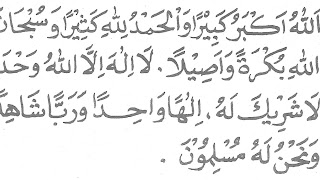 اَللهُ اَكْبَرُ كَبِيْرًا وَالْحَمْدُ لِلّٰهِ كَثِيْرًا وَسُبْحَانَ
اللهِ بُكْرَةً وَاَصِيْلًا. لَا اِلٰهَ اِلَّا اللهُ وَحْدَ
لَا شَرِيْكَ لَهُ، اِلٰهًا وَاحِدًا وَرَبًّا شَاهِدًا
وَنَحْنُ لَهُ مُسْلِمُوْنَ.